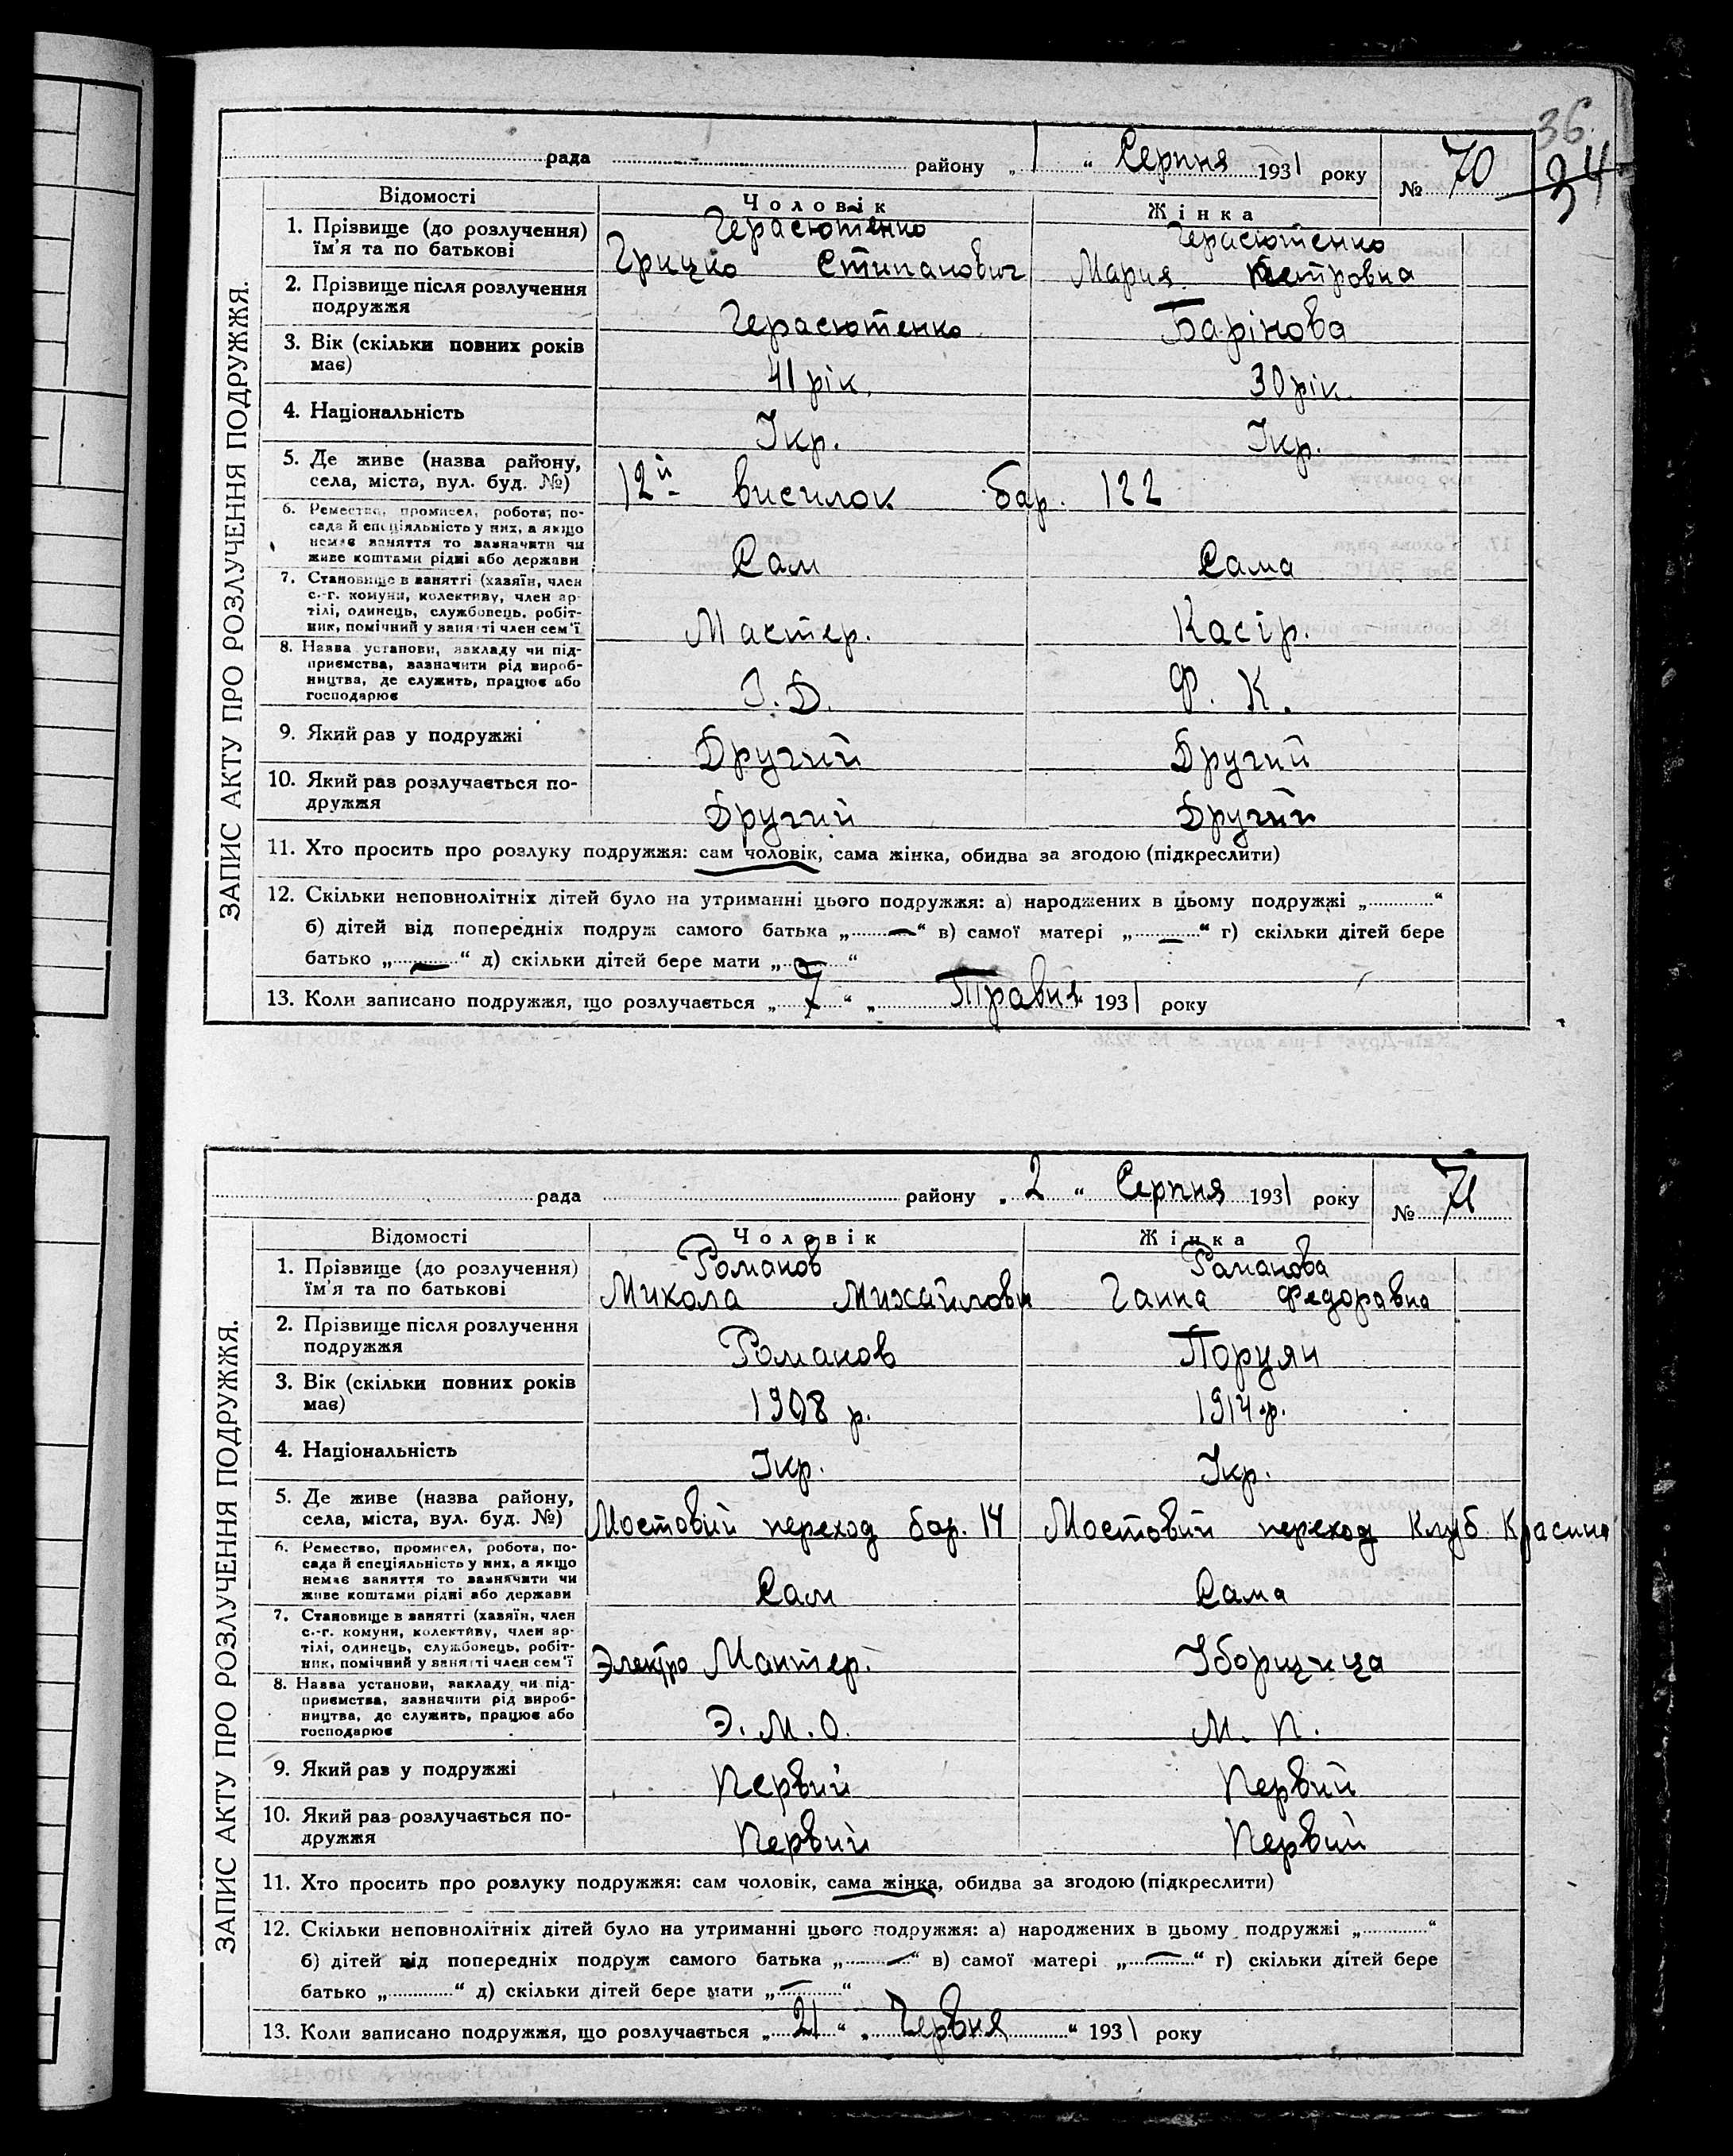 36
34
рада району „ 1 “ Серпня 1931 року № 70
ЗАПИС АКТУ ПРО РОЗЛУЧЕННЯ ПОДРУЖЖЯ.
Відомості Чоловік Жінка
1. Прізвище (до розлучення) Герасютенко Герасютенко
їм'я та по батькові Грицко Стипанович Мария Петровна
2. Прізвище після розлучення
подружжя Герасютенко Барінова
3. Вік (скільки повних років
має) 41 рік. 30 рік.
4. Національність Iкр. Iкр.
5. Де живе (назва району,
села, міста, вул. буд. №) 12й висилок бар. 122
6. Ремество, промисел, робота, по-
сада й спеціяльність у них, а якщо
немає заняття то зазначити чи
живе коштами рідні або держави Сам Сама
7. Становище в занятті (хазяїн, член
с.-г. комуни, колективу, член ар-
тілі, одинець, службовець, робіт-
ник, помічний у занятті член сем'ї Мастер. Касір.
8. Назва установи, закладу чи під-
приємства, зазначити рід вироб-
ництва, де служить, працює або
господарює З.Д. Ф. К.
9. Який раз у подружжі Другий Другий
10. Який раз розлучається по-
дружжя Другий Другий
11. Хто просить про розлуку подружжя: сам чоловік, сама жінка, обидва за згодою (підкреслити)
12. Скільки неповнолітніх дітей було на утриманні цього подружжя: а) народжених в цьому подружжі „ “
б) дітей від попередніх подруж самого батька „ — “ в) самої матері „ — “ г) скільки дітей бере
батько „ — “ д) скільки дітей бере мати „ “
13. Коли записано подружжя, що розлучається „ 7 “ „ Травня 1931 року
рада району „ 2 “ Серпня 1931 року № 71
ЗАПИС АКТУ ПРО РОЗЛУЧЕННЯ ПОДРУЖЖЯ.
Відомості Чоловік Жінка
1. Прізвище (до розлучення) Романов Романова
їм'я та по батькові Микола Михайлови Ганна Федоравна
2. Прізвище після розлучення
подружжя Романов Поруян
3. Вік (скільки повних років
має) 1908 р. 1914 р.
4. Національність Iкр. Iкр.
5. Де живе (назва району,
села, міста, вул. буд. №) Мостовий переход бар. 14 Мостовий переход Клуб Красина
6. Ремество, промисел, робота, по-
сада й спеціяльність у них, а якщо
немає заняття то зазначити чи
живе коштами рідні або держави Сам Сама
7. Становище в занятті (хазяїн, член
с.-г. комуни, колективу, член ар-
тілі, одинець, службовець, робіт-
ник, помічний у занятті член сем'ї Электро Мантер. Уборщица
8. Назва установи, закладу чи під-
приємства, зазначити рід вироб-
ництва, де служить, працює або
господарює Э.М.О. М. П.
9. Який раз у подружжі Первий Первий
10. Який раз розлучається по-
дружжя Первий Первий
11. Хто просить про розлуку подружжя: сам чоловік, сама жінка, обидва за згодою (підкреслити)
12. Скільки неповнолітніх дітей було на утриманні цього подружжя: а) народжених в цьому подружжі „ “
б) дітей від попередніх подруж самого батька „ — “ в) самої матері „ — “ г) скільки дітей бере
батько „ “ д) скільки дітей бере мати „ — “
13. Коли записано подружжя, що розлучається „ 21 “ „ Червня “ 1931 року